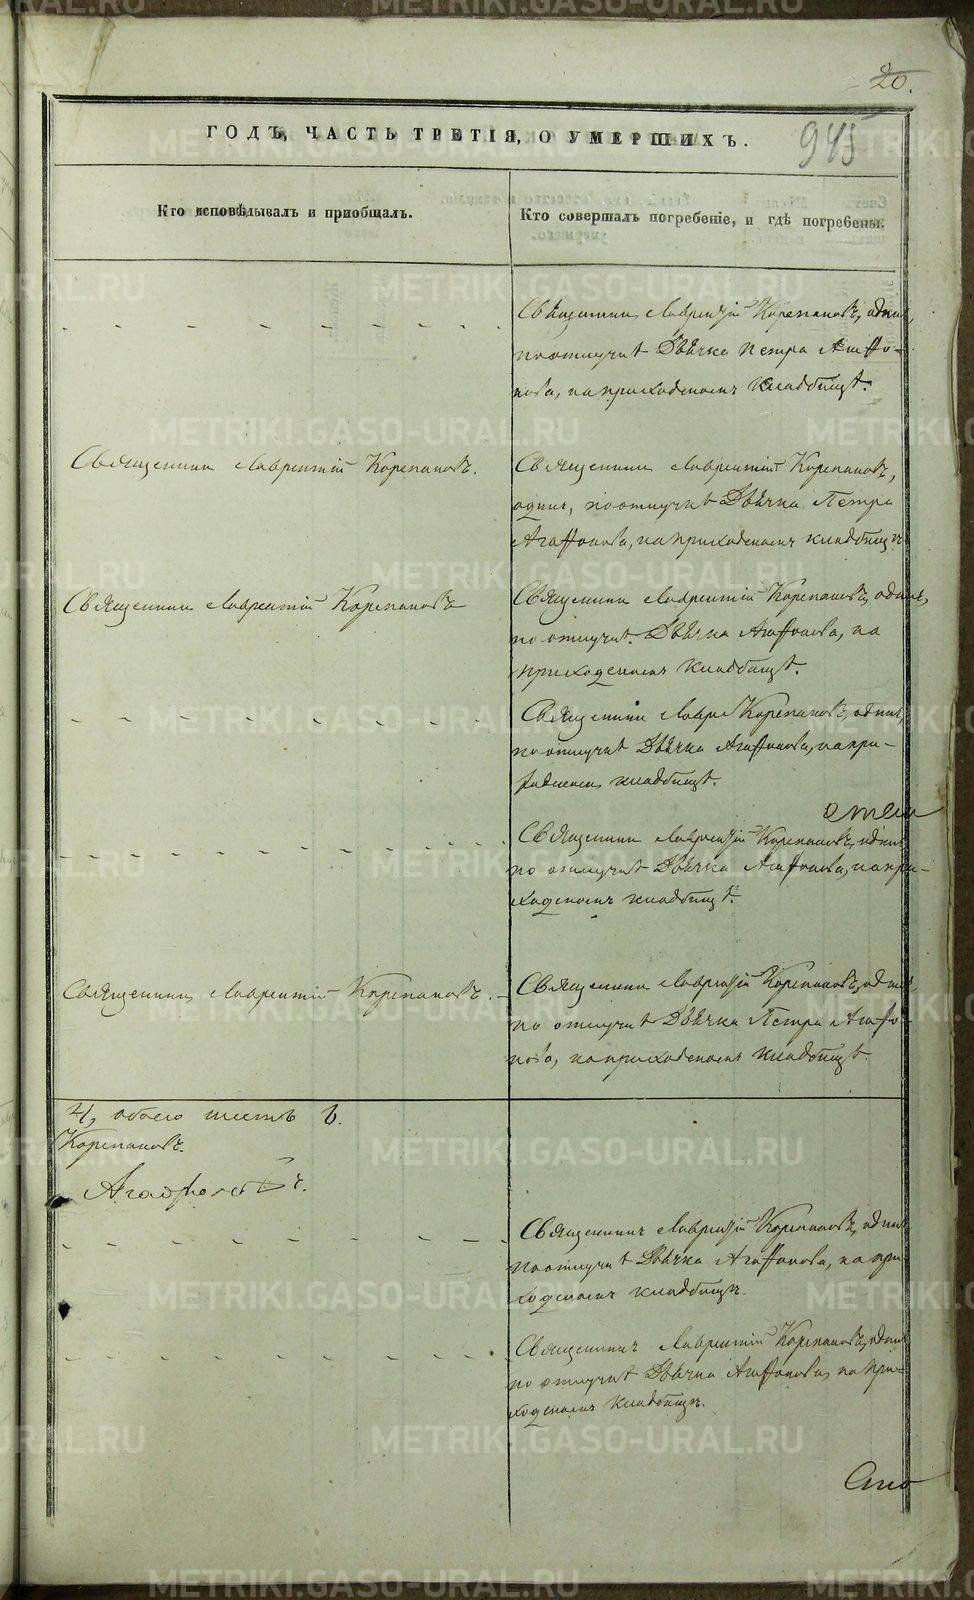 20.
945
ГОДЪ, ЧАСТЬ ТРЕТІЯ, О УМЕРШИХЪ.
Кто исповѣдывалъ и пріобщалъ.
Кто совершалъ погребеніе, и гдѣ погребены.
Священникъ Лаврентій Корепановъ, одинъ,
по отлучкѣ Дьячка Петра Агаффо-
нова, на приходскомъ кладбищѣ.
Священникъ Лаврентій Корепановъ.
Священникъ Лаврентій Корепановъ,
одинъ, по отлучкѣ Дьячка Петра
Агаффонова, на приходскомъ кладбищѣ
Священникъ Лаврентій Корепановъ
Священникъ Лаврентій Корепановъ, одинъ,
по отлучкѣ Дьячка Агаффонова, на
приходскомъ кладбищѣ.
Священникъ Лавре Корепановъ, одинъ,
по отлучкѣ Дьячка Агаффонова, на при-
ходскомъ кладбищѣ.
Священникъ Лаврентій Корепановъ, одинъ
по отлучкѣ Дьячка Агаффонова, на при-
ходскомъ кладбищѣ.
Священникъ Лаврентій Корепановъ.
Священникъ Лаврентій Корепановъ, одинъ
по отлучкѣ Дьячка Петра Агаффо-
нова, на приходскомъ кладбищѣ.
4, обоего шесть 6.
Корепановъ.
Агафоновъ
Священникъ Лаврентій Корепановъ, одинъ
по отлучкѣ Дьячка Агаффонова, на при
ходскомъ кладбищѣ.
Священникъ Лаврентій Корепановъ, одинъ
по отлучкѣ Дьячка Агаффонова, на при-
ходскомъ кладбищѣ.
METRIKI.GASO-URAL.RU